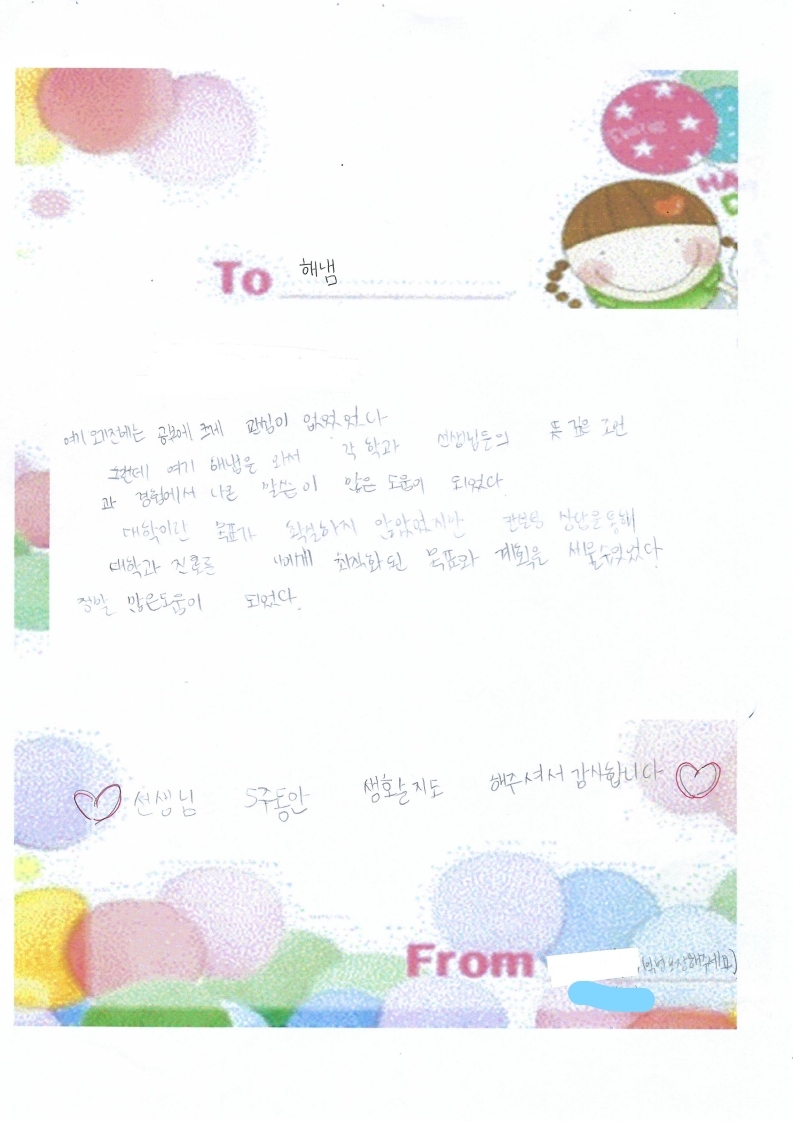 To 해냄
HA
여기 오기전에는 공부에 크게 관심이 없었었다
그런데 여기 해냄을 와서 각 학과 선생님들의 뜻 깊은 조언
과 경험에서 나온 말씀이 많은 도움이 되었다
대학이란 목표가 확실하지 않았었지만 상담을 통해
대학과 진로를 나에게 최적화 된 목표와 계획을 세울수있었다
정말 많은도움이 되었다.
선생님 5주동안 생활지도 해주셔서 감사합니다
From